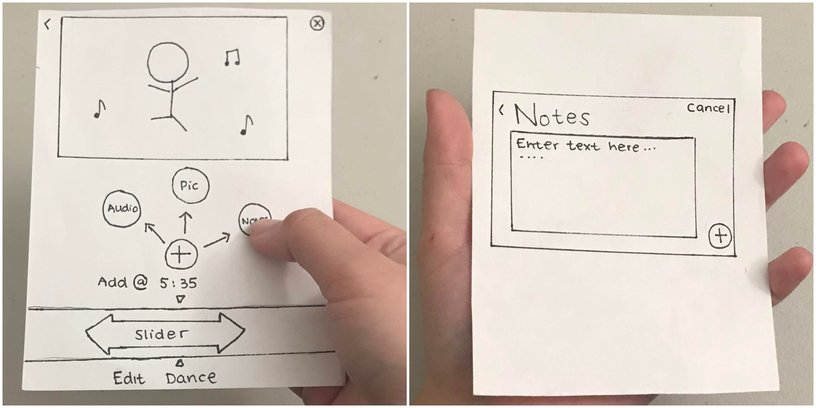 Pic
Audio
Add @ 5:35
Slider
Edit Dance
Notes
Cancel
Enter text here...